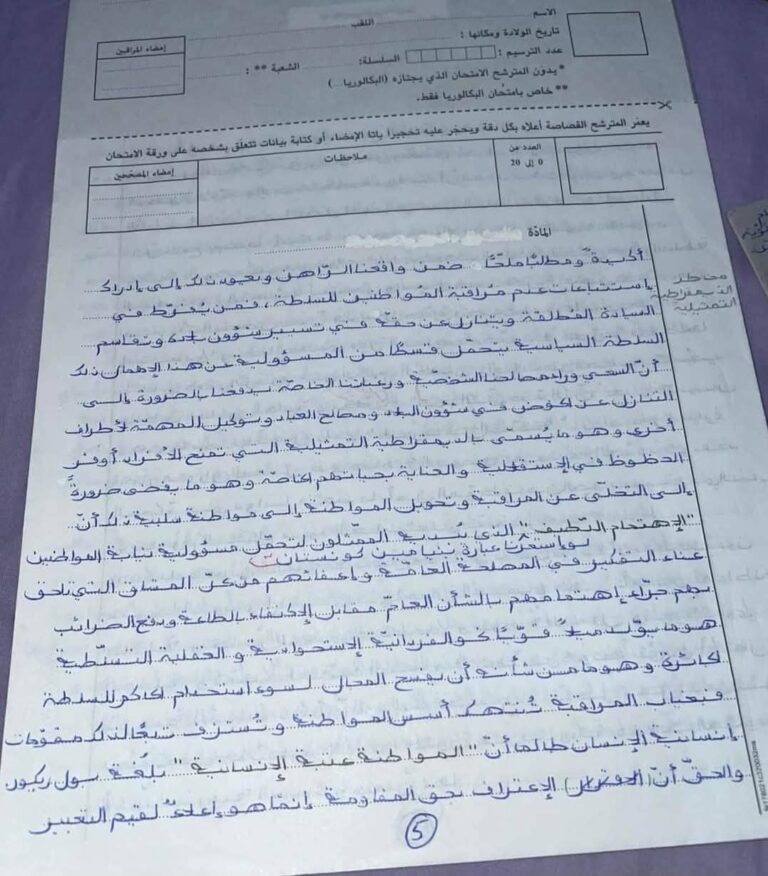 الاسم
اللقب
تاريخ الولادة ومكانها :
عدد الترسيم :
السلسلة:
الشعبة ** :
إمضاء المراقبين
*يدوّن المترشح الامتحان الذي يجتازه (البكالوريا ...)
** خاص بامتحان البكالوريا فقط.
يعمّر المترشح القصاصة أعلاه بكل دقة ويحجّر عليه تحجيرا باتا الإمضاء أو كتابة بيانات تتعلق بشخصه على ورقة الامتحان
العدد من 0 إلى 20
ملاحظات
إمضاء المصححين
المادّة
مخاطر
الديمقراطية
التمثيلية
أكيدة و مطلبا ملحّا ضمن واقعنا الرّاهن و يعود ذلك إلى إدراك
إستتباعات عدم مراقبة المواطنين للسلطة ، فمن يُفرّط في
السيادة المُطلقة ويتنازل عن حقّه في تسيير شؤون بلاده و تقاسم
السلطة السياسية يتحمّل قسطا من المسؤولية عن هذا الإهمال ذلك
أنّ السعي وراء مصالحنا الشخصيّة و رغباتنا الخاصّة يدفعنا بالضرورة إلى
التنازل عن الخوض في شؤون البلاد و مصالح العباد و توكيل المهمّة لأطراف
أخرى و هو ما يُسمّى بالديمقراطية التمثيلية التي تمنح للأفراد أوفر
الحظوظ في الإستقلالية و العناية بحياتهم الخاصّة و هو ما يُفضي ضرورةً
إلى التخلّي عن المراقبة و تحويل المواطنة إلى مواطنة سلبية ذلك أنّ
"الإهتمام اللّطيف" الذي يُبديه الممثّلون لتحمّل مسؤولية نيابة المواطنين
لو إستعرنا عبارة بنيامين كونستان
عناء التفكير في المصلحة العامّة و إعفائهم من المشاق التي تلحق
بهم جرّاء إهتمامهم بالشأن العامّ مقابل الإكتفاء بالطاعة و دفع الضرائب
هو ما يولّد ميلا قويّا نحو الفردانيّة الإستحواذية و العقلية التسلّطية
الجائرة و هو ما من شأنه أن يفسح المجال لسوء استخدام الحاكم للسلطة
فبغياب المراقبة تُنتهك أسس المواطنة و تُستنزف تبعًا لذلك مقوّمات
إنسانية الإنسان طالما أنّ "المواطنة عتبة الإنسانية" بلُغة بول ريكور
والحقّ أنّ الإعتراف بحق المقاومة إنّما هو إعلاءٌ لقيم التعبير
5